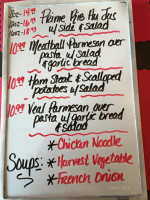 8oz-14.99 Prime Rib Au Jus
12oz-16.99 w/ side & salad
16oz-18.99
10.99 Meatball Parmesan over
pasta w/ salad
& garlic bread
10.99 Ham Steak & Scalloped
potatoes w/ salad
10.99 Veal Parmesan over
pasta w/ garlic bread
& salad
*Chicken Noodle
Soups: *Harvest Vegetable
*French Onion